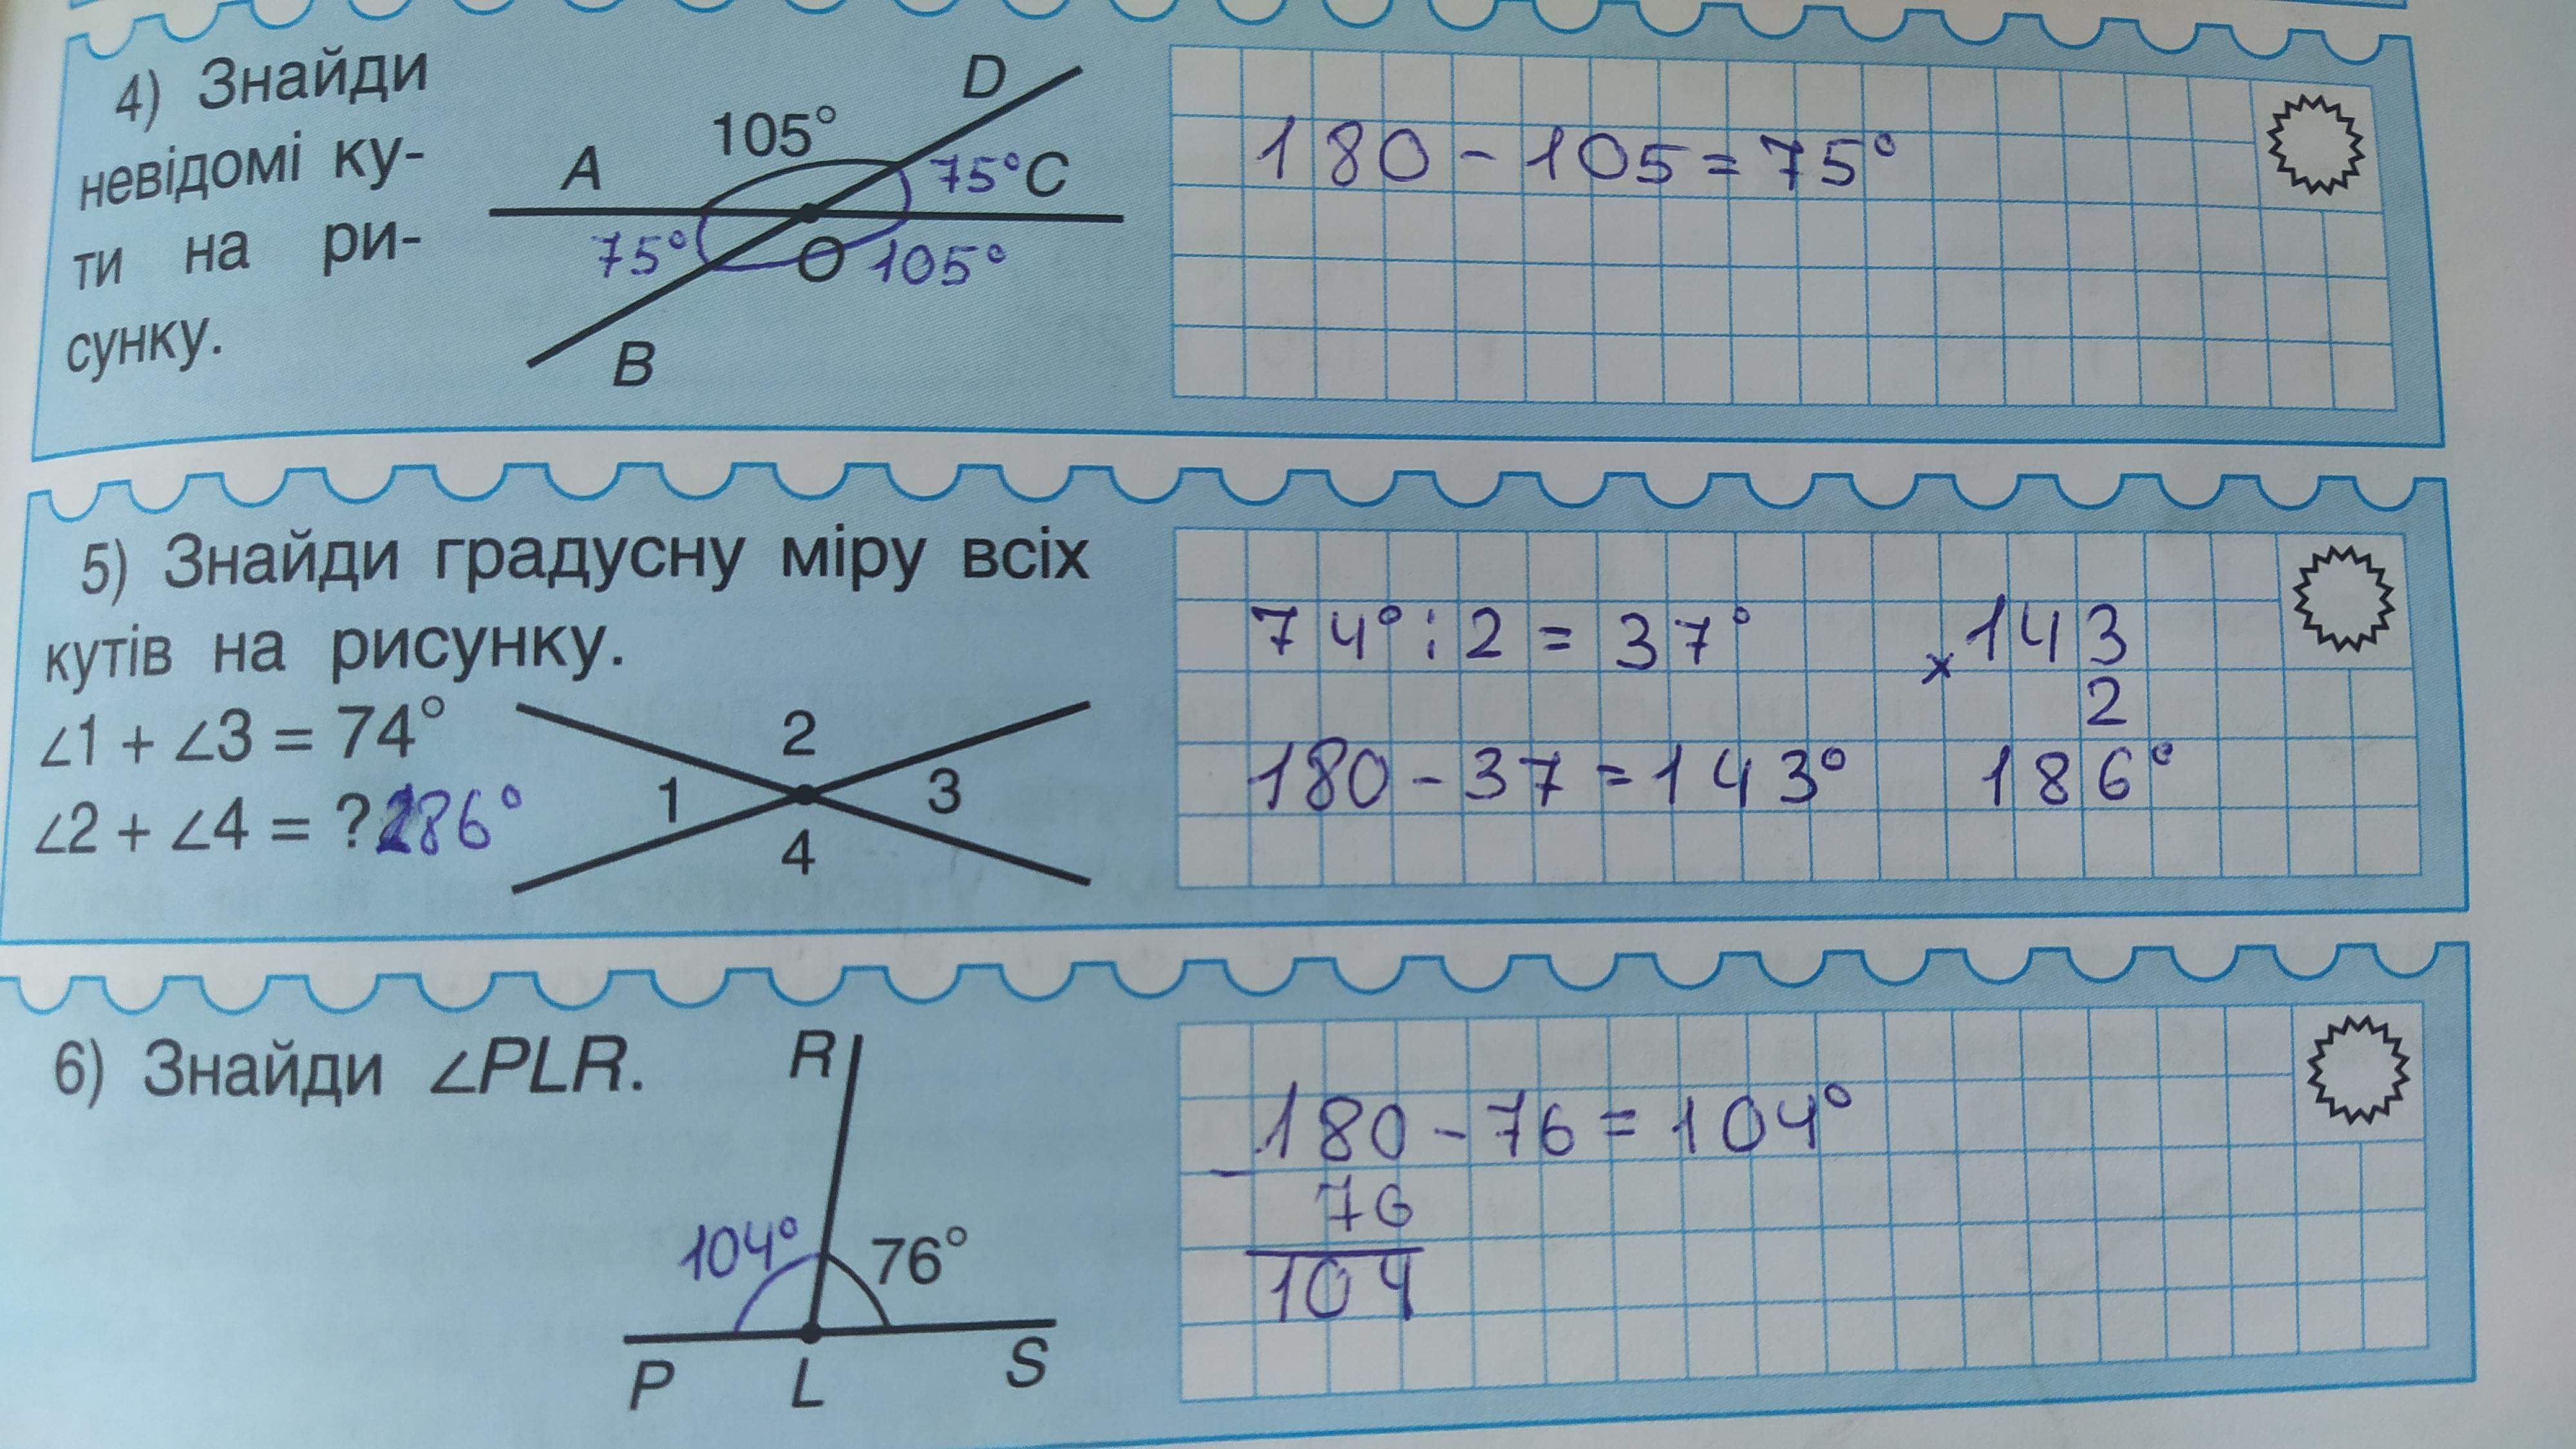 4) Знайди
невідомі ку-
ти на ри-
сунку.
105°
D
A
75°
C
75°
O
105°
B
180 - 105 = 75°
5) Знайди градусну міру всіх
кутів на рисунку.
∠1 + ∠3 = 74°
∠2 + ∠4 = ? 286°
2
1
3
4
74° : 2 = 37°
180 - 37 = 143°
× 143
2
186°
6) Знайди ∠PLR.
R
104°
76°
P
L
S
180 - 76 = 104°
- 76
104